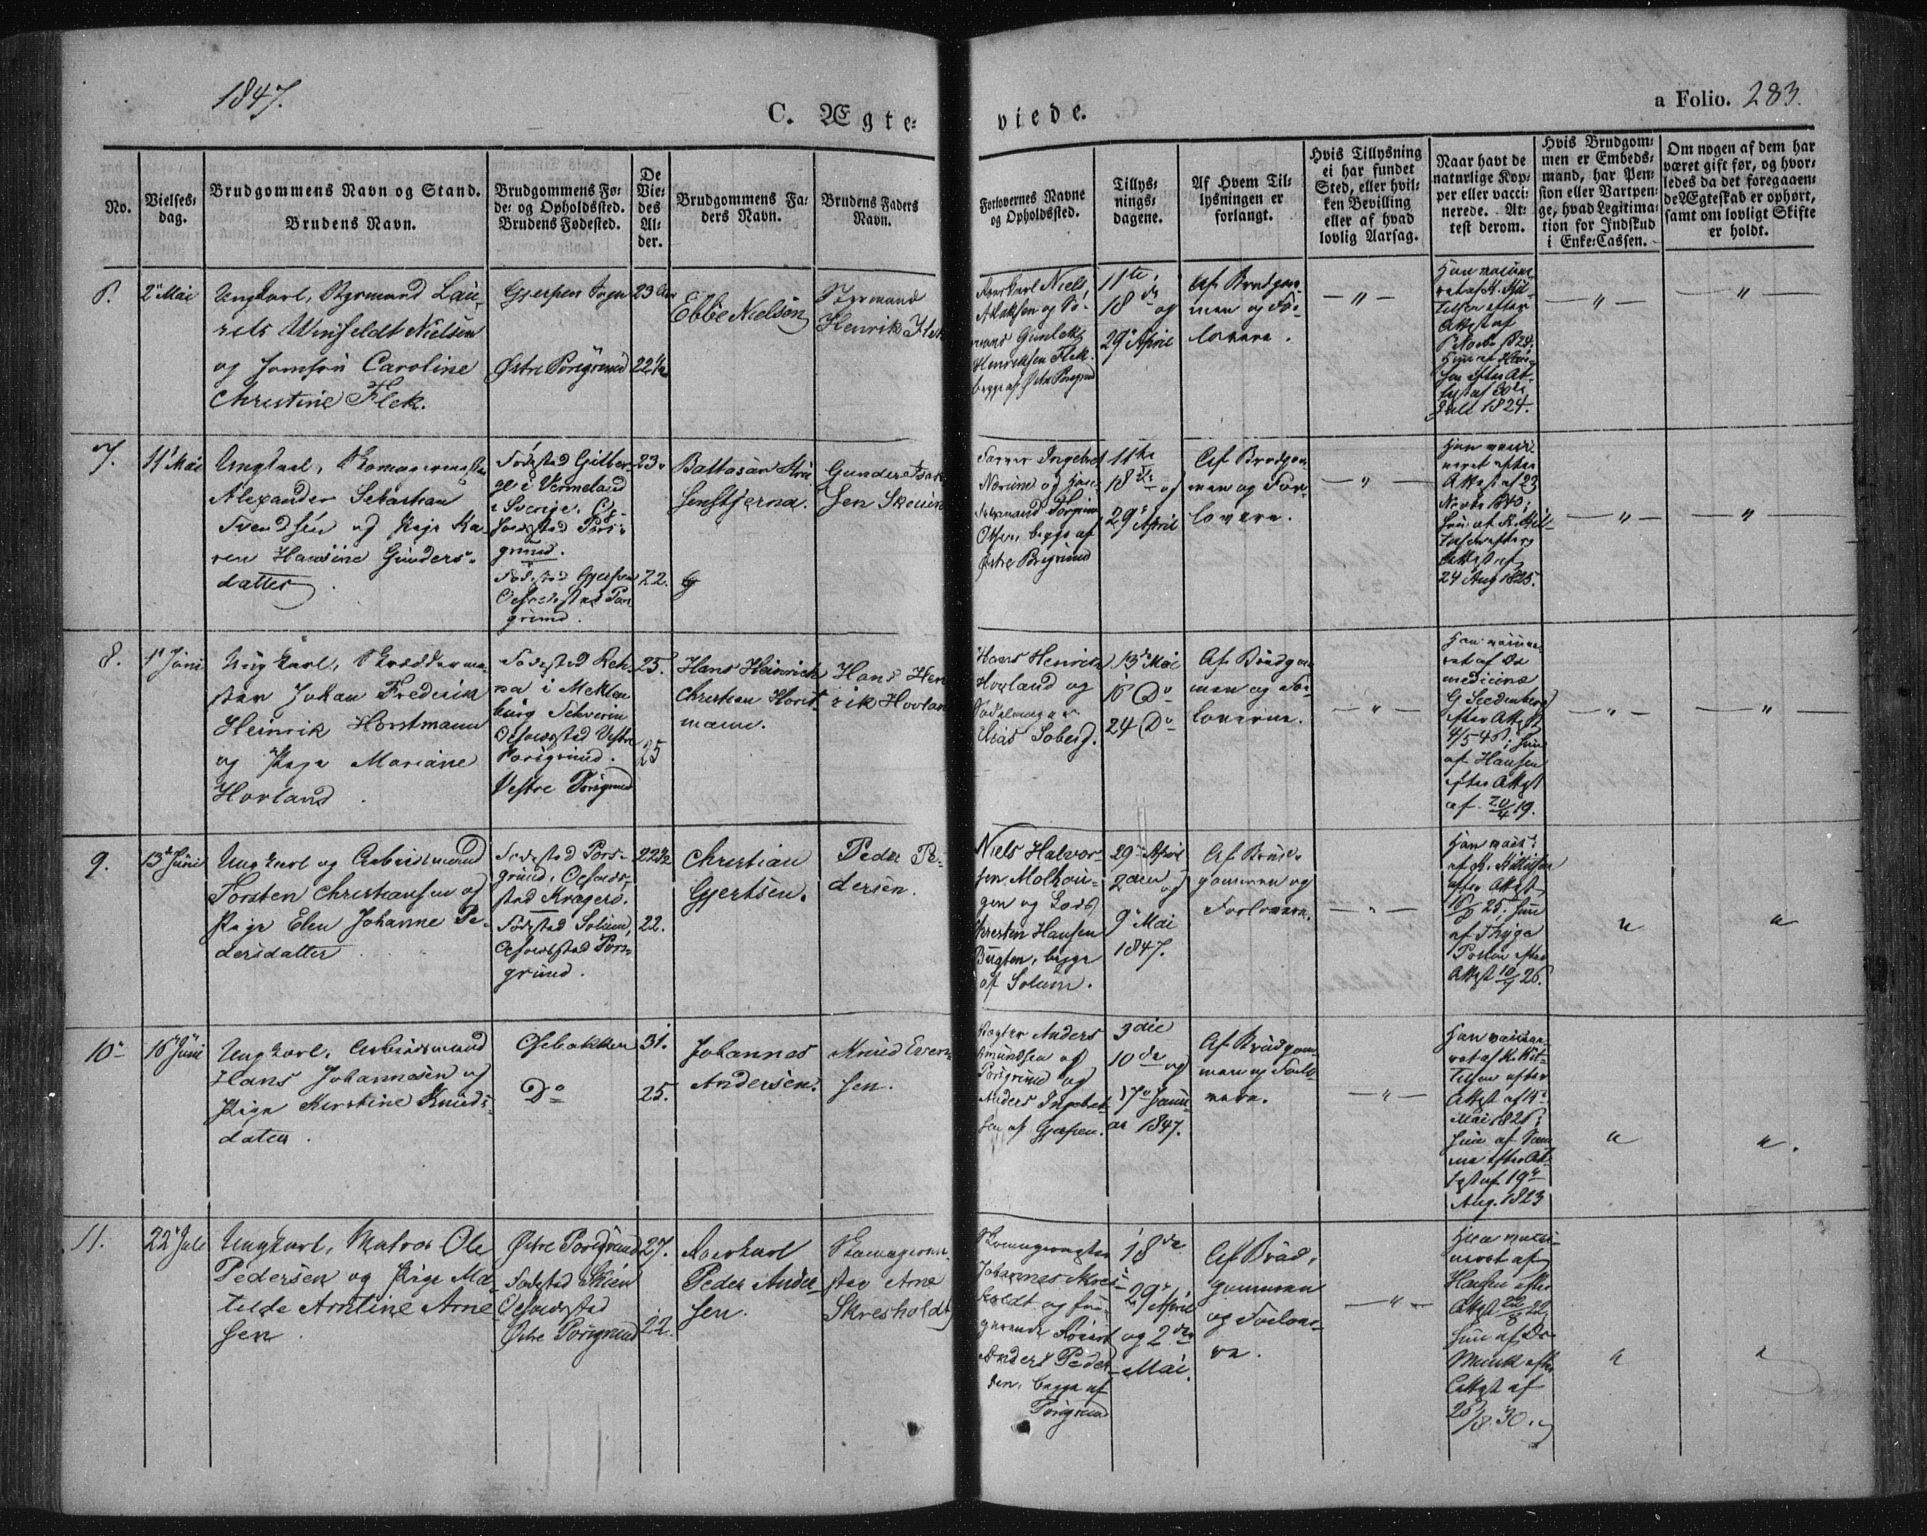 1847.
C. Ægte-
viede.
a Folio. 283.
No.
Vielses-
dag.
Brudgommens Navn og Stand.
Brudens Navn.
Brudgommens Fø-
de- og Opholdssted.
Brudens Fødested.
De
Vie-
des
Al-
der.
Brudgommens Fa-
ders Navn.
Brudens Faders
Navn.
Forlovernes Navne
og Opholdssted.
Tillys-
nings-
dagene.
Af Hvem Til-
lysningen er
forlangt.
Hvis Tillysning
ei har fundet
Sted, eller hvil-
ken Bevilling
eller af hvad
lovlig Aarsag.
Naar havt de
naturlige Kop-
per eller vacci-
nerede. At-
test derom.
Hvis Brudgom-
men er Embeds-
mand, har Pen-
sion eller Vartpen-
ge, hvad Legitima-
tion for Indskud
i Enke-Cassen.
Om nogen af dem har
været gift før, og hvor-
ledes da det foregaaen-
de Ægteskab er ophørt,
samt om lovligt Skifte
er holdt.
6.
2 Mai
Ungkarl, Styrmand Lau-
rids Winfeldt Nielsen
og Jomfru Caroline
Christine Flek.
Gjerpen Sogn
Østre Porsgrund
23 Aar
22½
Ebbe Nielsen
Styrmand
Henrik Flek
Niels
Aslaksen og
Gunlek
Henriksen Flek,
begge af Østre Porsgrund
11te,
18de og
29 April
Af Brudgom-
men og For-
lovere.
Han vaccine-
ret af K. Kit-
tilsen efter
Attest af
Novbr 1824.
Hun af Han-
sen efter At-
test af
Juli 1824.
7.
11 Mai
Ungkarl, Skomagermester
Alexander Sebastian
Svendsen og Pige Ka-
ren Hansine Gunders-
datter
Fødested Gilber-
ge i Vermeland
i Sverige. Op-
holdssted Pors-
grund.
Fødested Gjerpen
Opholdssted Pors-
grund.
23
22.
Baltasar
Gunder Isak-
sen
Ingebret
og
Torgrim
Olsen, begge af
Østre Porsgrund
11te
18de og
29 April
Af Brudgom-
men og For-
lovere.
Han vacci-
neret efter
Attest af 23
Hun af K. Kit-
tilsen efter
Attest af
24 Aug 1825.
8.
1 Juni
Ungkarl, Skrædderme-
ster Johan Frederik
Heinrik Horstmann
og Pige Mariane
Hovland
Fødested Reh-
na i Meklen-
burg Schverin
Opholdssted Vestre
Porsgrund.
Vestre Porsgrund
25.
25
Hans Heinrich
Christian Horst-
mann.
Hans Hen-
rik Hovland
Hans Henrik
Hovland og
Sadelmager
Elias Soberg.
13de Mai
16 Do
24 Do
Af Brudgom-
men og For-
loverne.
Han vaccine-
ret af Dr
medicinæ
G Seedenberg
efter Attest
4/5 45; Hun
af Hansen
efter Attest
af 20/4 19.
9.
13 Juni
Ungkarl og Arbeidsmand
Torsten Christiansen og
Pige Elen Johanne Pe-
dersdatter
Fødested Pors-
grund, Opholds-
sted Kragerø.
Fødested Solum,
Opholdssted Pors-
grund.
22½
22.
Christian
Gjertsen.
Peder Pe-
dersen.
Niels Halvor-
sen Molhou-
gen og Lods
Chresten Hansen
Bugten, begge
af Solum.
29 April
2den og
9 Mai
1847.
Af Brud-
gommen og
Forlovere.
Han vacc:
af K. Kittilsen
efter Attest
25. Hun
af Thyge
efter
Attest 10/9 26.
10
16 Juni
Ungkarl, Arbeidsmand
Hans Johannesen og
Pige Kirstine Knuds-
daten.
Osebakken
Do
31.
25.
Johannes
Andersen.
Knud Even-
sen.
Anders
Amundsen af
Porsgrund og
Anders Ingebret-
sen af Gjerpen.
3die
10de og
17 Janu-
ar 1847.
Af Brudgom-
men og Forlo-
vere.
Han vaccine-
ret af K. Kit-
tilsen efter
Attest af
Mai 1826;
Hun af Sam-
me efter At-
test af 19
Aug. 1823
11.
22 Juli
Ungkarl, Matros Ole
Pedersen og Pige Ma-
tilde Arntine Arne-
sen
Østre Porsgrund
Fødested Skien
Opholdssted
Østre Porsgrund
27.
22.
Peder Ander-
sen.
Skomagerme-
ster Arne
Skresholdt
Skomagermester
Johannes Skres-
holdt og fun-
gerende
Anders Peder-
sen, begge af
Porsgrund
18de
29 April
og 2den
Mai.
Af Brud-
gommen
og Forlove-
re.
Han vacci-
neret af
Hansen efter
Attest 22/8 22,
Hun af Dr
Munk efter
Attest af
30.